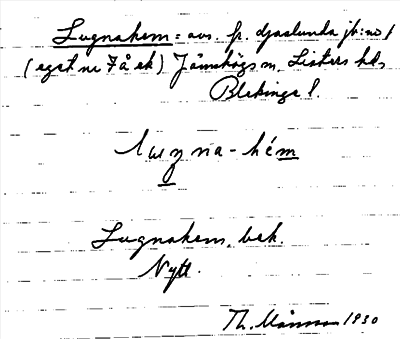 Lugnahem = avs. fr. Djaslunda jb: no 1
(egst. nr 7 å ek) Jämshögs sn, Listers hd,
Blekinge l.
luŋna-hém
Lugnahem, bek.
Nytt.
Th. Månsson 1930